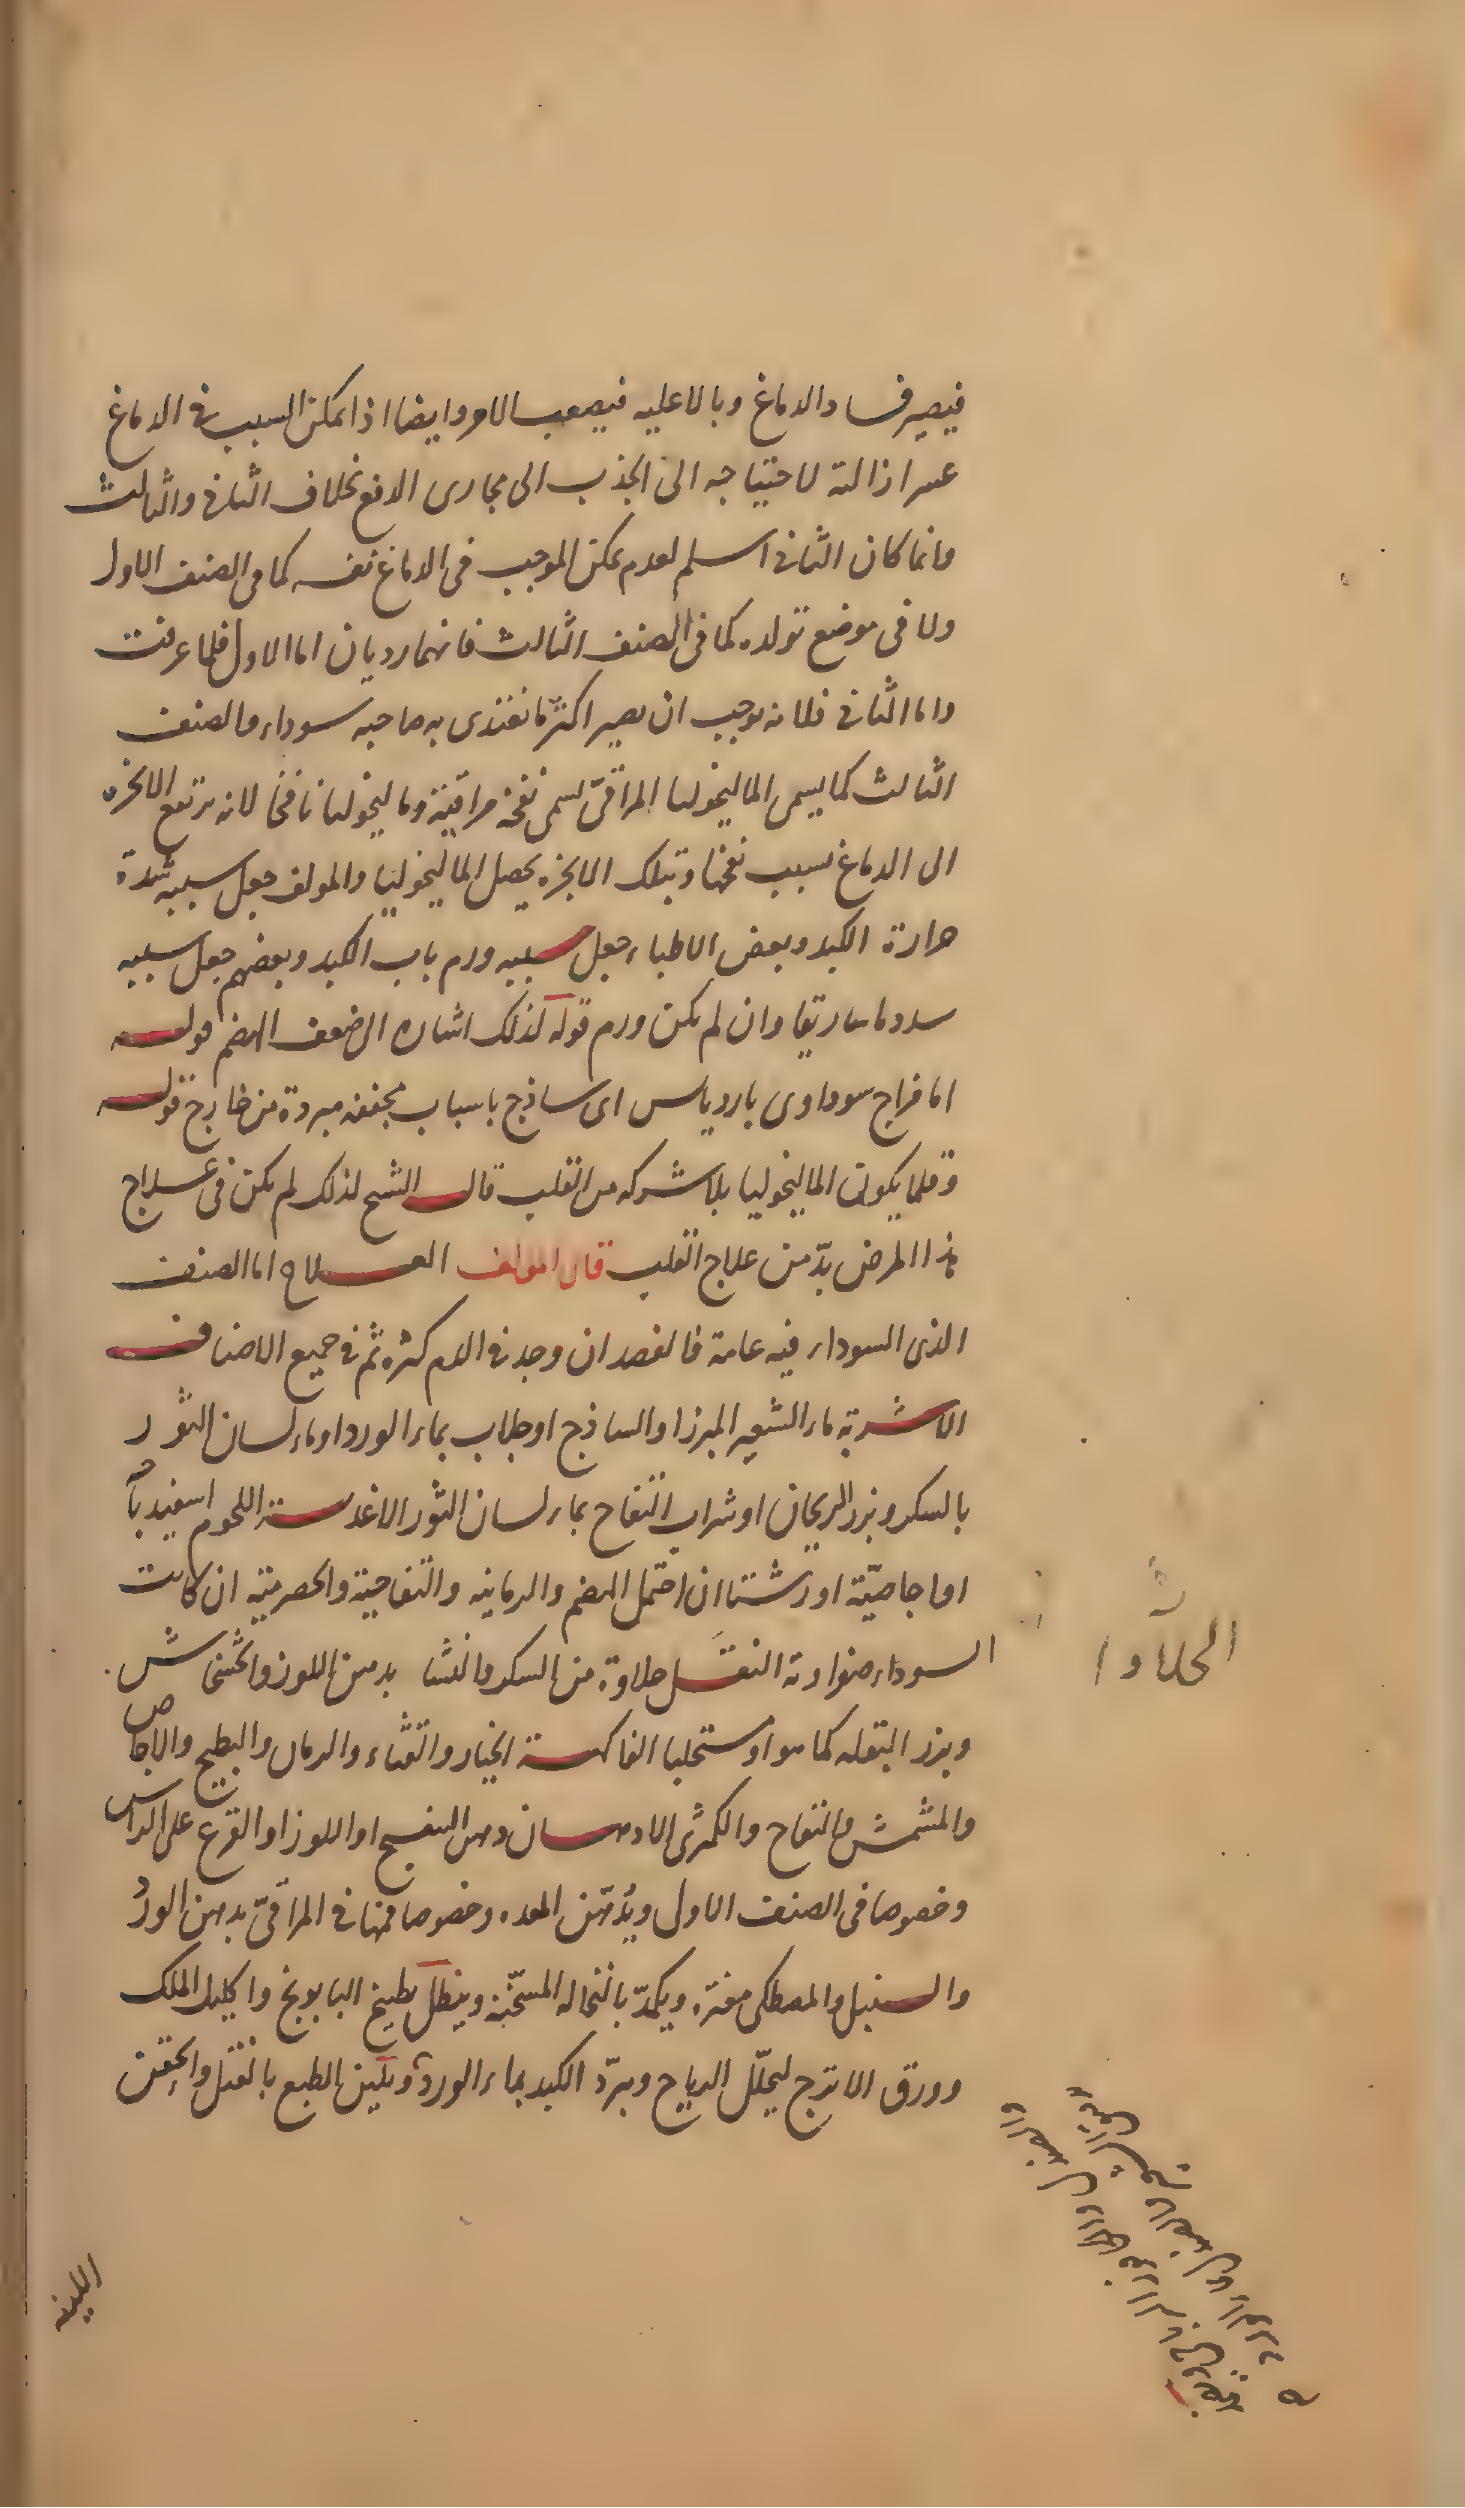 فيصير فساد الدماغ وبالا عليه فيصعب الامر وايضا اذا تمكن السبب في الدماغ
عسر ازالته لاحتياجه الى الجذب الى مجارى الدفع بخلاف الثانى والثالث
وانما كان الثانى اسلم لعدم تمكن الموجب فى الدماغ نفسه كما فى الصنف الاول
ولا فى موضع تولده كما فى الصنف الثالث فانهما رديان اما الاول فلما عرفت
واما الثانى فلانه يوجب ان يصير اكثر ما تغتذى به صاحبه سوداء والصنف
الثالث كما يسمى الماليخوليا المراقىّ يسمى نفخة مراقية وماليخوليا نافخا لانه ترتفع الابخره
الى الدماغ بسبب نفخها وبتلك الابخره يحصل الماليخوليا والمولف جعل سببه شدة
حرارة الكبد وبعض الاطباء جعل سببه ورم باب الكبد وبعضهم جعل سببه
سدد ماساريقا وان لم يكن ورم قوله لذلك اشاره الى ضعف الهضم قوله
اما مزاج سوداوى بارد يابس اى ساذج باسباب مجففه مبردة من خارج قوله
وقلما يكون الماليخوليا بلا شركه من القلب قال الشيخ لذلك لم يكن فى علاج
هذا المرض بدّ من علاج القلب قال المولف العلاج اما الصنف
الذى السوداء فيه عامة فالفصد ان وجد فى الدم كثره ثم فى جميع الاصناف
الاشربة ماء الشعير المبزر او الساذج او جلاب بماء الورد او ماء لسان الثور
بالسكر وبزر الريحان او شراب التفاح بماء لسان الثور الاغدية اللحوم اسفيدبا
او اجاصيّة او زشتا ان احتمل الهضم والرمانيه والتفاحية والحصرمية ان كانت
السوداء صفراوية النقل حلاوة من السكر والنشا بدهن اللوز والخشخاش
وبزر البقله كما هو او مستحلبا الفاكهة الخيار والقثاء والرمان والبطيخ والاجاص
والمشمش والتفاح والكمثرى الادهان دهن البنفسج او اللوز او القرع على الراس
وخصوصا فى الصنف الاول ويدّهن المعده وخصوصا فمها فى المراقىّ بدهن الورد
والسنبل والمصطكى مفترة ويكمدّ بالنخاله المسخّنة وينطل بطبيخ البابونج واكليل الملك
وورق الاترج ليحلّل الرياح ويبرّد الكبد بماء الورد ويلين الطبع بالفتل والحقن
الحلاوا
اللينه